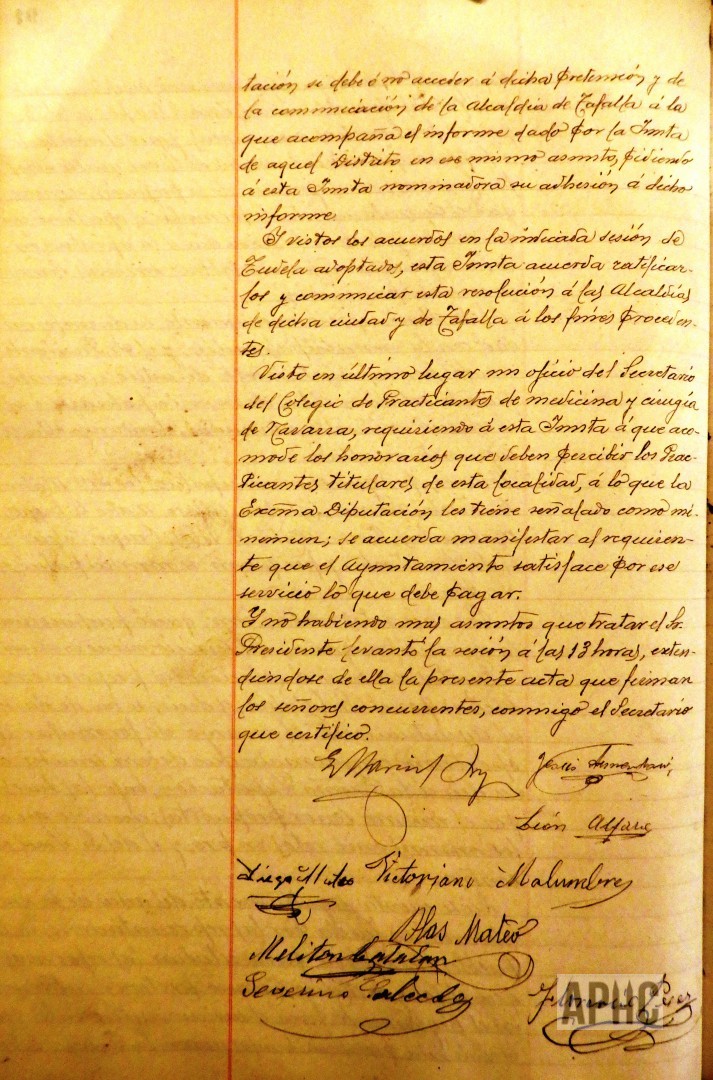 tación si debe ó no acceder á dicha pretensión y de
la comunicación de la Alcaldía de Tafalla á la
que acompaña el informe dado por la Junta
de aquel Distrito en ese mismo asunto, pidiendo
á esta Junta nominadora su adhesión á dicho
informe.
Y vistos los acuerdos en la indicada sesión de
Tudela adoptados, esta Junta acuerda ratificar-
los y comunicar esta resolución á las Alcaldías
de dicha ciudad y de Tafalla á los fines proceden-
tes.
Visto en último lugar un oficio del Secretario
del Colegio de Practicantes de medicina y cirugía
de Navarra, requiriendo á esta Junta á que aco-
mode los honorarios que deben percibir los Prac-
ticantes titulares de esta localidad, á lo que la
Excma Diputación les tiene señalado como mí-
nimun; se acuerda manifestar al requiren-
te que el Ayuntamiento satisface por ese
servicio lo que debe pagar.
Y no habiendo mas asuntos que tratar el Sr.
Presidente levantó la sesión á las 13 horas, exten-
diéndose de ella la presente acta que firman
los señores concurrentes, conmigo el Secretario
que certifico.
Jesús
León Alfaro
Diego Mateo Victoriano Malumbres
Blas Mateo
Meliton Catalan
Severino
APHC